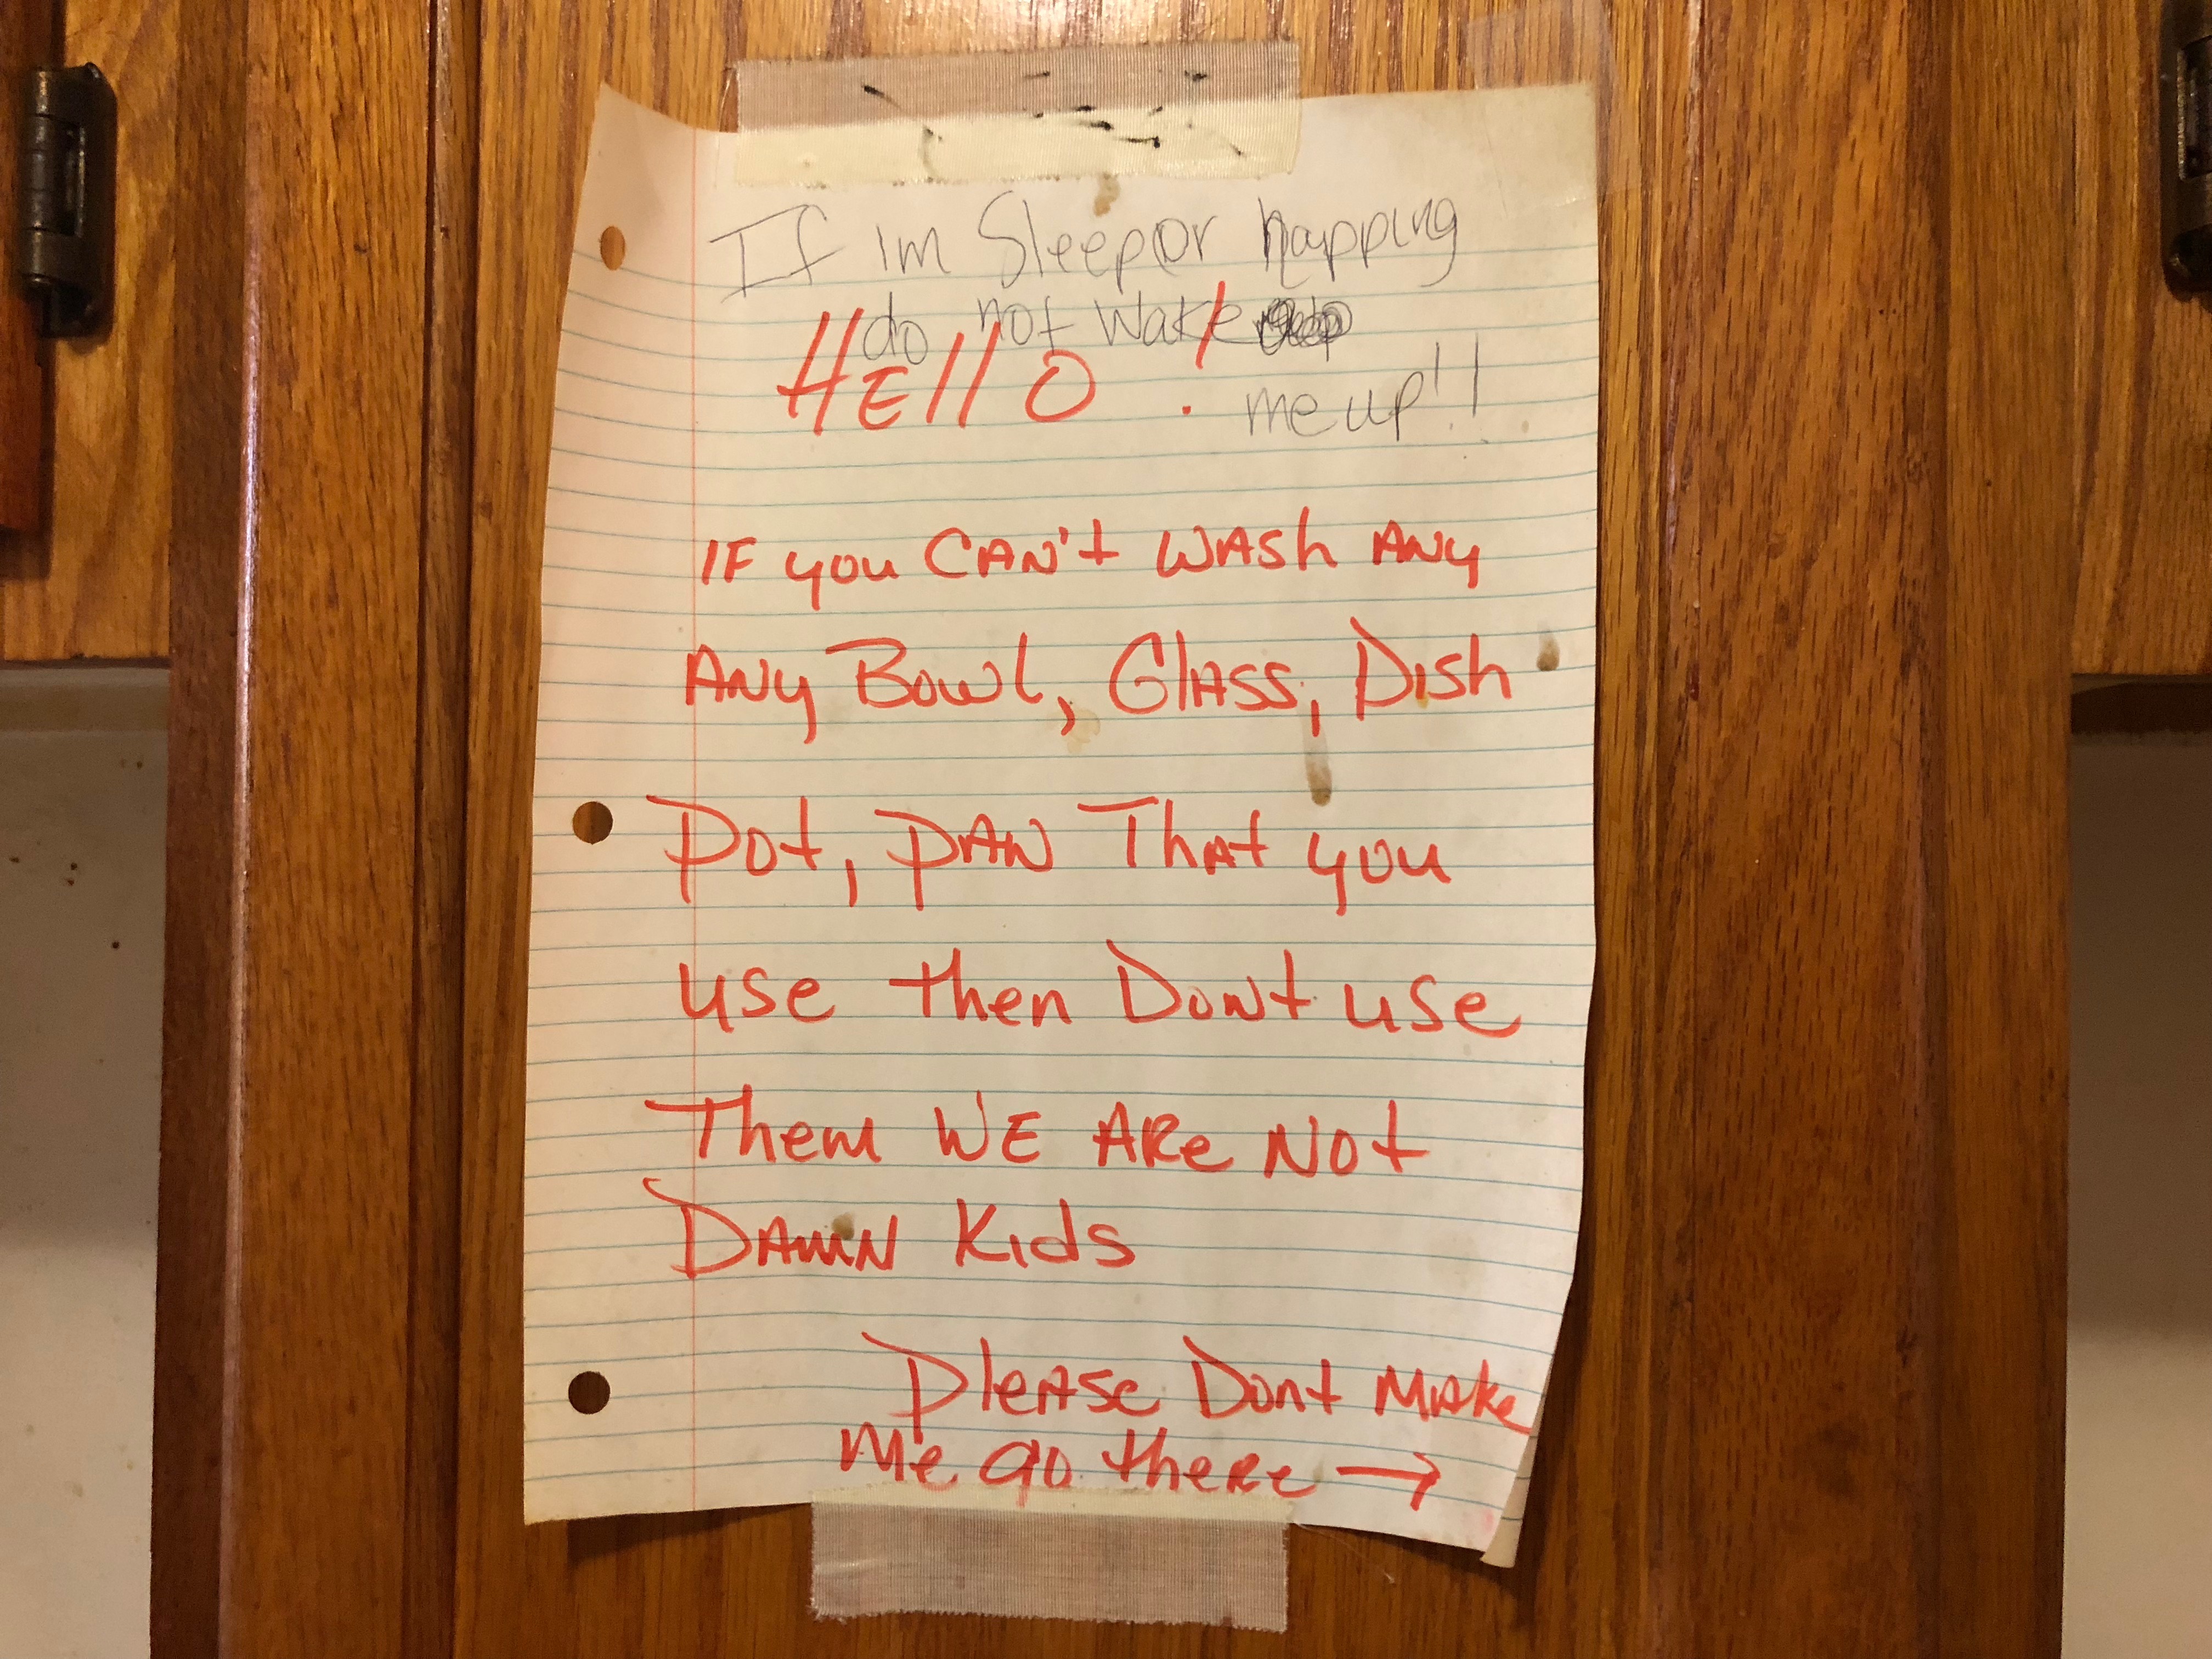 If im Sleep or napping
do not wake
me up!!
HEllO !
IF you CAN't WASh ANy
ANy Bowl, GlASS, Dish
Pot, PAN ThAt you
use then Dont use
Them WE ARe Not
DAMN Kids
PleASe Dont MAke
Me go theRe →